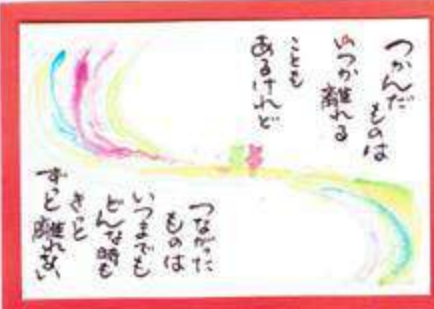 つかんだ
ものは
いつか離れる
ことも
あるけれど
つながった
ものは
いつまでも
どんな時も
きっと
ずっと離れない